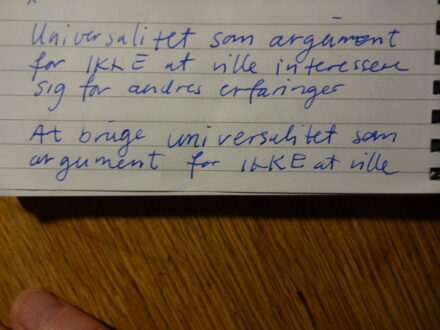 Universalitet som argument
for IKKE at ville interessere
sig for andres erfaringer
At bruge universalitet som
argument for IKKE at ville